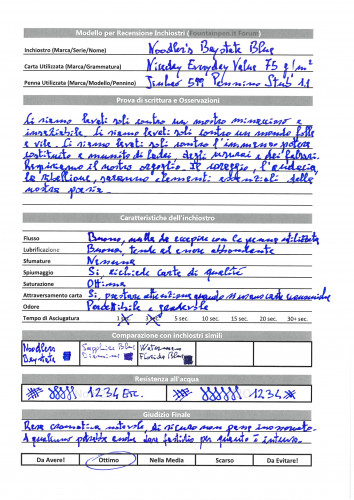 Modello per Recensione Inchiostri (Fountainpen.it Forum)
Inchiostro (Marca/Serie/Nome) Noodler's Baystate Blue
Carta Utilizzata (Marca/Grammatura) Niceday Everyday Value 75 g/m²
Penna Utilizzata (Marca/Modello/Pennino) Jinhao 599 Pennino Stub 1.1
Prova di scrittura e Osservazioni
Ci siamo levati soli contro un mostro minaccioso e
insaziabile. Ci siamo levati soli contro un mondo folle
e vile. Ci siamo levati soli contro l'immenso
costituito e munito di ladri, degli usurai e dei falsari.
il nostro orgoglio. Il coraggio, l'audacia,
la ribellione, saranno elementi essenziali della
nostra poesia.
Caratteristiche dell'inchiostro
Flusso Buono, nulla da eccepire con la penna utilizzata
Lubrificazione Buona, tende ad essere abbondante
Sfumature Nessuna
Spiumaggio Si, richiede carte di qualità
Saturazione Ottima
Attraversamento carta Si, prestare attenzione quando si usano carte economiche
Odore Percettibile e gradevole
Tempo di Asciugatura 1 sec. 3 sec. 5 sec. 10 sec. 15 sec. 20 sec. 30+ sec.
Comparazione con inchiostri simili
Noodlers Baystate Sapphire Blue Diamine Waterman Florida Blue
Resistenza all'acqua
1234 Etc. 1234
Giudizio Finale
Resa cromatica notevole, di sicuro non passa inosservato.
A qualcuno potrebbe anche dare fastidio per quanto è intenso.
Da Avere! Ottimo Nella Media Scarso Da Evitare!